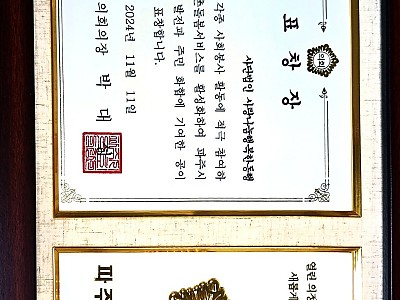 의회
표 창 장
사단법인 사랑나눔행복한동행
각종 사회봉사 활동에 적극 참여하
촌돌봄서비스를 활성화하여 파주시
발전과 주민 화합에 기여한 공이
표창합니다.
2024년 11월 11일
의회의장 박 대
열린 의정
새롭게
파주